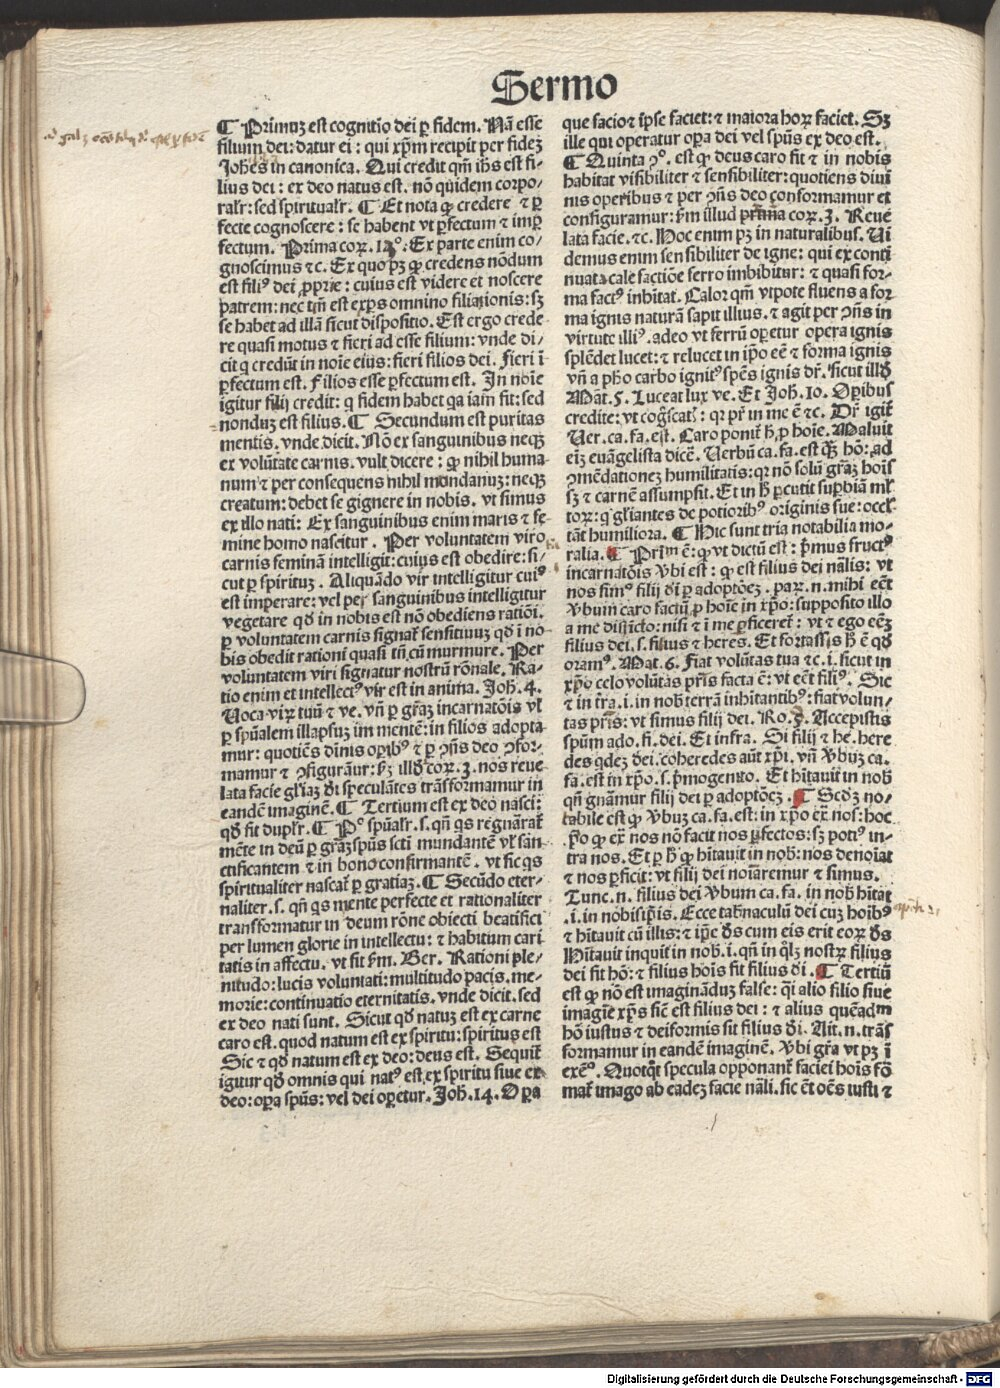 Sermo
¶ Primuꝫ est cognitio dei ꝑ fidem. Nã esse
filium dei: datur ei : qui xp̃m recipit per fideꝫ
Joh̃es in canonica. Qui credit qm̃ ih̃s est fi-
lius dei : ex deo natus est. nõ quidem corpo/
ralr̃: sed spiritualr̃. ¶ Et nota ꝙ credere ⁊ ꝑ
fecte cognoscere : se habent vt ꝑfectum ⁊ imꝑ
fectum. Prima coꝝ. 13°. Ex parte enim co/
gnoscimus ⁊c. Ex quo pꝫ ꝙ credens nõdum
est filiꝰ dei ꝓprie : cuius est videre et noscere
patrem: nec tm̃ est exꝑs omnino filiationis: sꝫ
se habet ad illã sicut dispositio. Est ergo crede
re quasi motus ⁊ fieri ad esse filium: vnde di/
cit q credũt in noĩe eius: fieri filios dei. Fieri ĩ
ꝑfectum est. Filios esse ꝑfectum est. In noĩe
igitur filij credit: q fidem habet qa iam fit: sed
nonduꝫ est filius. ¶ Secundum est puritas
mentis. vnde dicit. Nõ ex sanguinibus neqꝫ
ex volũtate carnis. vult dicere : ꝙ nihil huma-
num ⁊ per consequens nihil mundanuꝫ: neqꝫ
creatum: debet se gignere in nobis. vt simus
ex illo nati: Ex sanguinibus enim maris ⁊ fe-
mine homo nascitur . Per voluntatem viro
carnis feminã intelligit: cuius est obedire: si/
cut ꝑ spirituꝫ . Aliquãdo vir intelligitur cuiꝰ
est imperare: vel per sanguinibus intelligitur
vegetare qd̃ in nobis est nõ obediens ratiõi.
ꝑ voluntatem carnis signat̃ sensitiuuꝫ qd̃ ĩ no-
bis obedit rationi quasi tñ cũ murmure. Per
voluntatem viri signatur nostrũ rõnale. Ra-
tio enim et intellectꝰ vir est in anima. Joh̃. 4.
Uoca virꝝ tuũ ⁊ ve. vñ ꝑ gr̃aꝫ incarnatõis vl̃
ꝑ spũalem illapsuꝫ im mentẽ: in filios adopta
mur: quotiẽs diuinis oꝑibꝰ ⁊ ꝑ ꝯñs deo ꝯfor/
mamur ⁊ ꝯfigurãur: ẜꝫ illd̃ coꝝ. 3. nos reue
lata facie gl̃iaꝫ dñi speculãtes trãsformamur in
eandẽ imaginẽ. ¶ Tertium est ex deo nasci:
qd̃ fit duplr̃. ¶ Pº spũalr̃. s. qñ qs regnãrat̃
mẽte in deũ ꝑ gr̃aꝫ spũs sctĩ mundantẽ vl̃ san
ctificantem ⁊ in bono confirmantẽ. vt sic qs
spiritualiter nascat̃ ꝑ gratiaꝫ. ¶ Secũdo eter-
naliter. s. qñ qs mente perfecte et rationaliter
transformatur in deum rõne obiecti beatifici
per lumen glorie in intellectu: ⁊ habitum cari
tatis in affectu. vt fit ẜm. Ber. Rationi ple/
nitudo: lucis voluntati: multitudo pacis. me-
morie: continuatio eternitatis. vnde dicit. sed
ex deo nati sunt. Sicut qd̃ natuꝫ est ex carne
caro est. quod natum est ex spiritu: spiritus est
Sic ⁊ qd̃ natum est ex deo: deus est. Sequit̃
igitur qd̃ omnis qui natꝰ est ex spiritu siue ex
deo: oꝑa spũs: vel dei oꝑetur. Joh̃. 14. Oꝑa
que facio ⁊ ip̃se faciet: ⁊ maiora hoꝝ faciet. Sꝫ
ille qui operatur oꝑa dei vel spũs ex deo est.
¶ Quinta ꝯº. est ꝙ deus caro fit ⁊ in nobis
habitat visibiliter ⁊ sensibiliter: quotiens diui
nis operibus ⁊ per ꝯñs deo conformamur et
configuramur: ẜm illud prima coꝝ. 3. Reue
lata facie. ⁊c. Hoc enim pꝫ in naturalibus. Ui
demus enim sensibiliter de igne: qui ex conti
nuata calefactiõe ferro imbibitur: ⁊ quasi for-
ma factꝰ inhĩtat. Calor qm̃ vtpote fluens a for
ma ignis naturã sapit illius. ⁊ agit per ꝯñs in
virtute illiꝰ. adeo vt ferrũ oꝑetur opera ignis
splẽdet lucet: ⁊ relucet in ip̃o eẽ ⁊ forma ignis
vñ a ph̃o carbo ignitꝰ spẽs ignis dr̃. sicut illd̃
Mat̃. 5. Luceat lux ve. Et Joh̃. 10. Oꝑibus
credite: vt cog̃scat̃ : qꝛ pr̃ in me ẽ ⁊c. Dr̃ igit̃
Uer. ca. fa. est. Caro ponit̃ h̃ ꝓ hoĩe. Maluit
eĩꝫ euãgelista dicẽ. Uerbũ ca. fa. est qꝫ hõ: ad
ꝯmẽdationeꝫ humilitatis: qꝛ nõ solũ gr̃aꝫ hoĩs
sꝫ ⁊ carnẽ assumpsit. Et in h̃ ꝑcutit suꝑbiã ml̃
toꝝ: q gl̃iantes de potioribꝰ originis sue: occl̃
tãt humiliora. ¶ Hic sunt tria notabilia mo-
ralia. ¶ Prĩm ẽ: ꝙ vt dictũ est : p̃mus fructꝰ
incarnatõis v̾bi est : ꝙ est filius dei nãlis: vt
nos simꝰ filij dĩ ꝑ adoptõeꝫ . paꝝ. n. mihi eẽt
v̾bum caro factũ ꝑ hoĩe in xp̃o: supposito illo
a me distĩcto: nisi ⁊ ĩ me ꝑficeret̃ : vt ⁊ ego eẽꝫ
filius dei. s. filius ⁊ heres. Et fortassis h̃ ẽ qd̃
oramꝰ. Mat. 6. Fiat volũtas tua ⁊c. i. sicut in
xp̃o celo volũtas pr̃is facta ẽ: vt eẽt filiꝰ. Sic
⁊ in tr̃a. i. in nob̃ terrã inhitantibꝰ: fiat volun/
tas pr̃is: vt simus filij dei. Ro. 8. Accepistis
spũm ado. fi. dei. Et infra. Si filij ⁊ he. here
des qdeꝫ dei. coheredes aũt xp̃i. vñ v̾buꝫ ca.
fa. est in xp̃o. s. p̃mogenito. Et hĩtauit in nob̃
qñ gnãmur filij dei ꝑ adoptõeꝫ. ¶ Scd̃ꝫ no/
tabile est ꝙ v̾buꝫ ca. fa. est: in xp̃o ex̃ nos: hoc
p̃o ꝙ ex̃ nos nõ facit nos ꝑfectos: sꝫ potiꝰ in-
tra nos. Et ꝑ h̃ ꝙ hĩtauit in nob̃: nos denoĩat
⁊ nos ꝑficit: vt filij dei noĩaremur ⁊ simus.
Tunc. n. filius dei v̾bum ca. fa. in nob̃ hĩtat
.i. in nobisip̃is. Ecce tab̃naculũ dei cuꝫ hoĩbꝰ
⁊ hĩtauit cũ illis: ⁊ ip̃e dẽs cum eis erit eoꝝ dẽs
Hĩtauit inquit in nob̃. i. qñ in qlꝫ nostrꝝ filius
dei fit hõ: ⁊ filius hoĩs fit filius dĩ . ¶ Tertiũ
est ꝙ nõ est imaginãduꝫ false: q̃i alio filio siue
imagĩe xp̃s sic̃ est filius dei : ⁊ alius quẽadm̃
hõ iustus ⁊ deiformis sit filius dĩ. Ait. n. trãs
formamur in eandẽ imaginẽ. v̾bi gr̃a vt pꝫ ĩ
exẽº. Quotqt̃ specula opponant̃ faciei hoĩs fõ
mat̃ imago ab eadeꝫ facie nãli. sic ẽt oẽs iusti ⁊
Digitalisierung gefördert durch die Deutsche Forschungsgemeinschaft - DFG